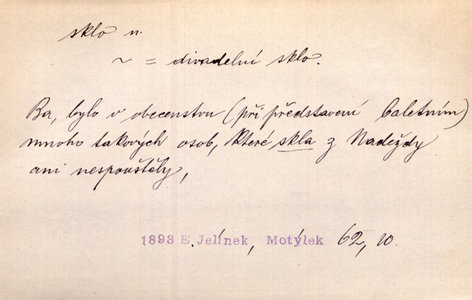 sklo n.
~ = divadelní sklo.
Ba, bylo v obecenstvu (při představení baletním)
mnoho takových osob, které skla z Naděždy
ani nespouštěly,
1893 E. Jelínek, Motýlek 62, 10.